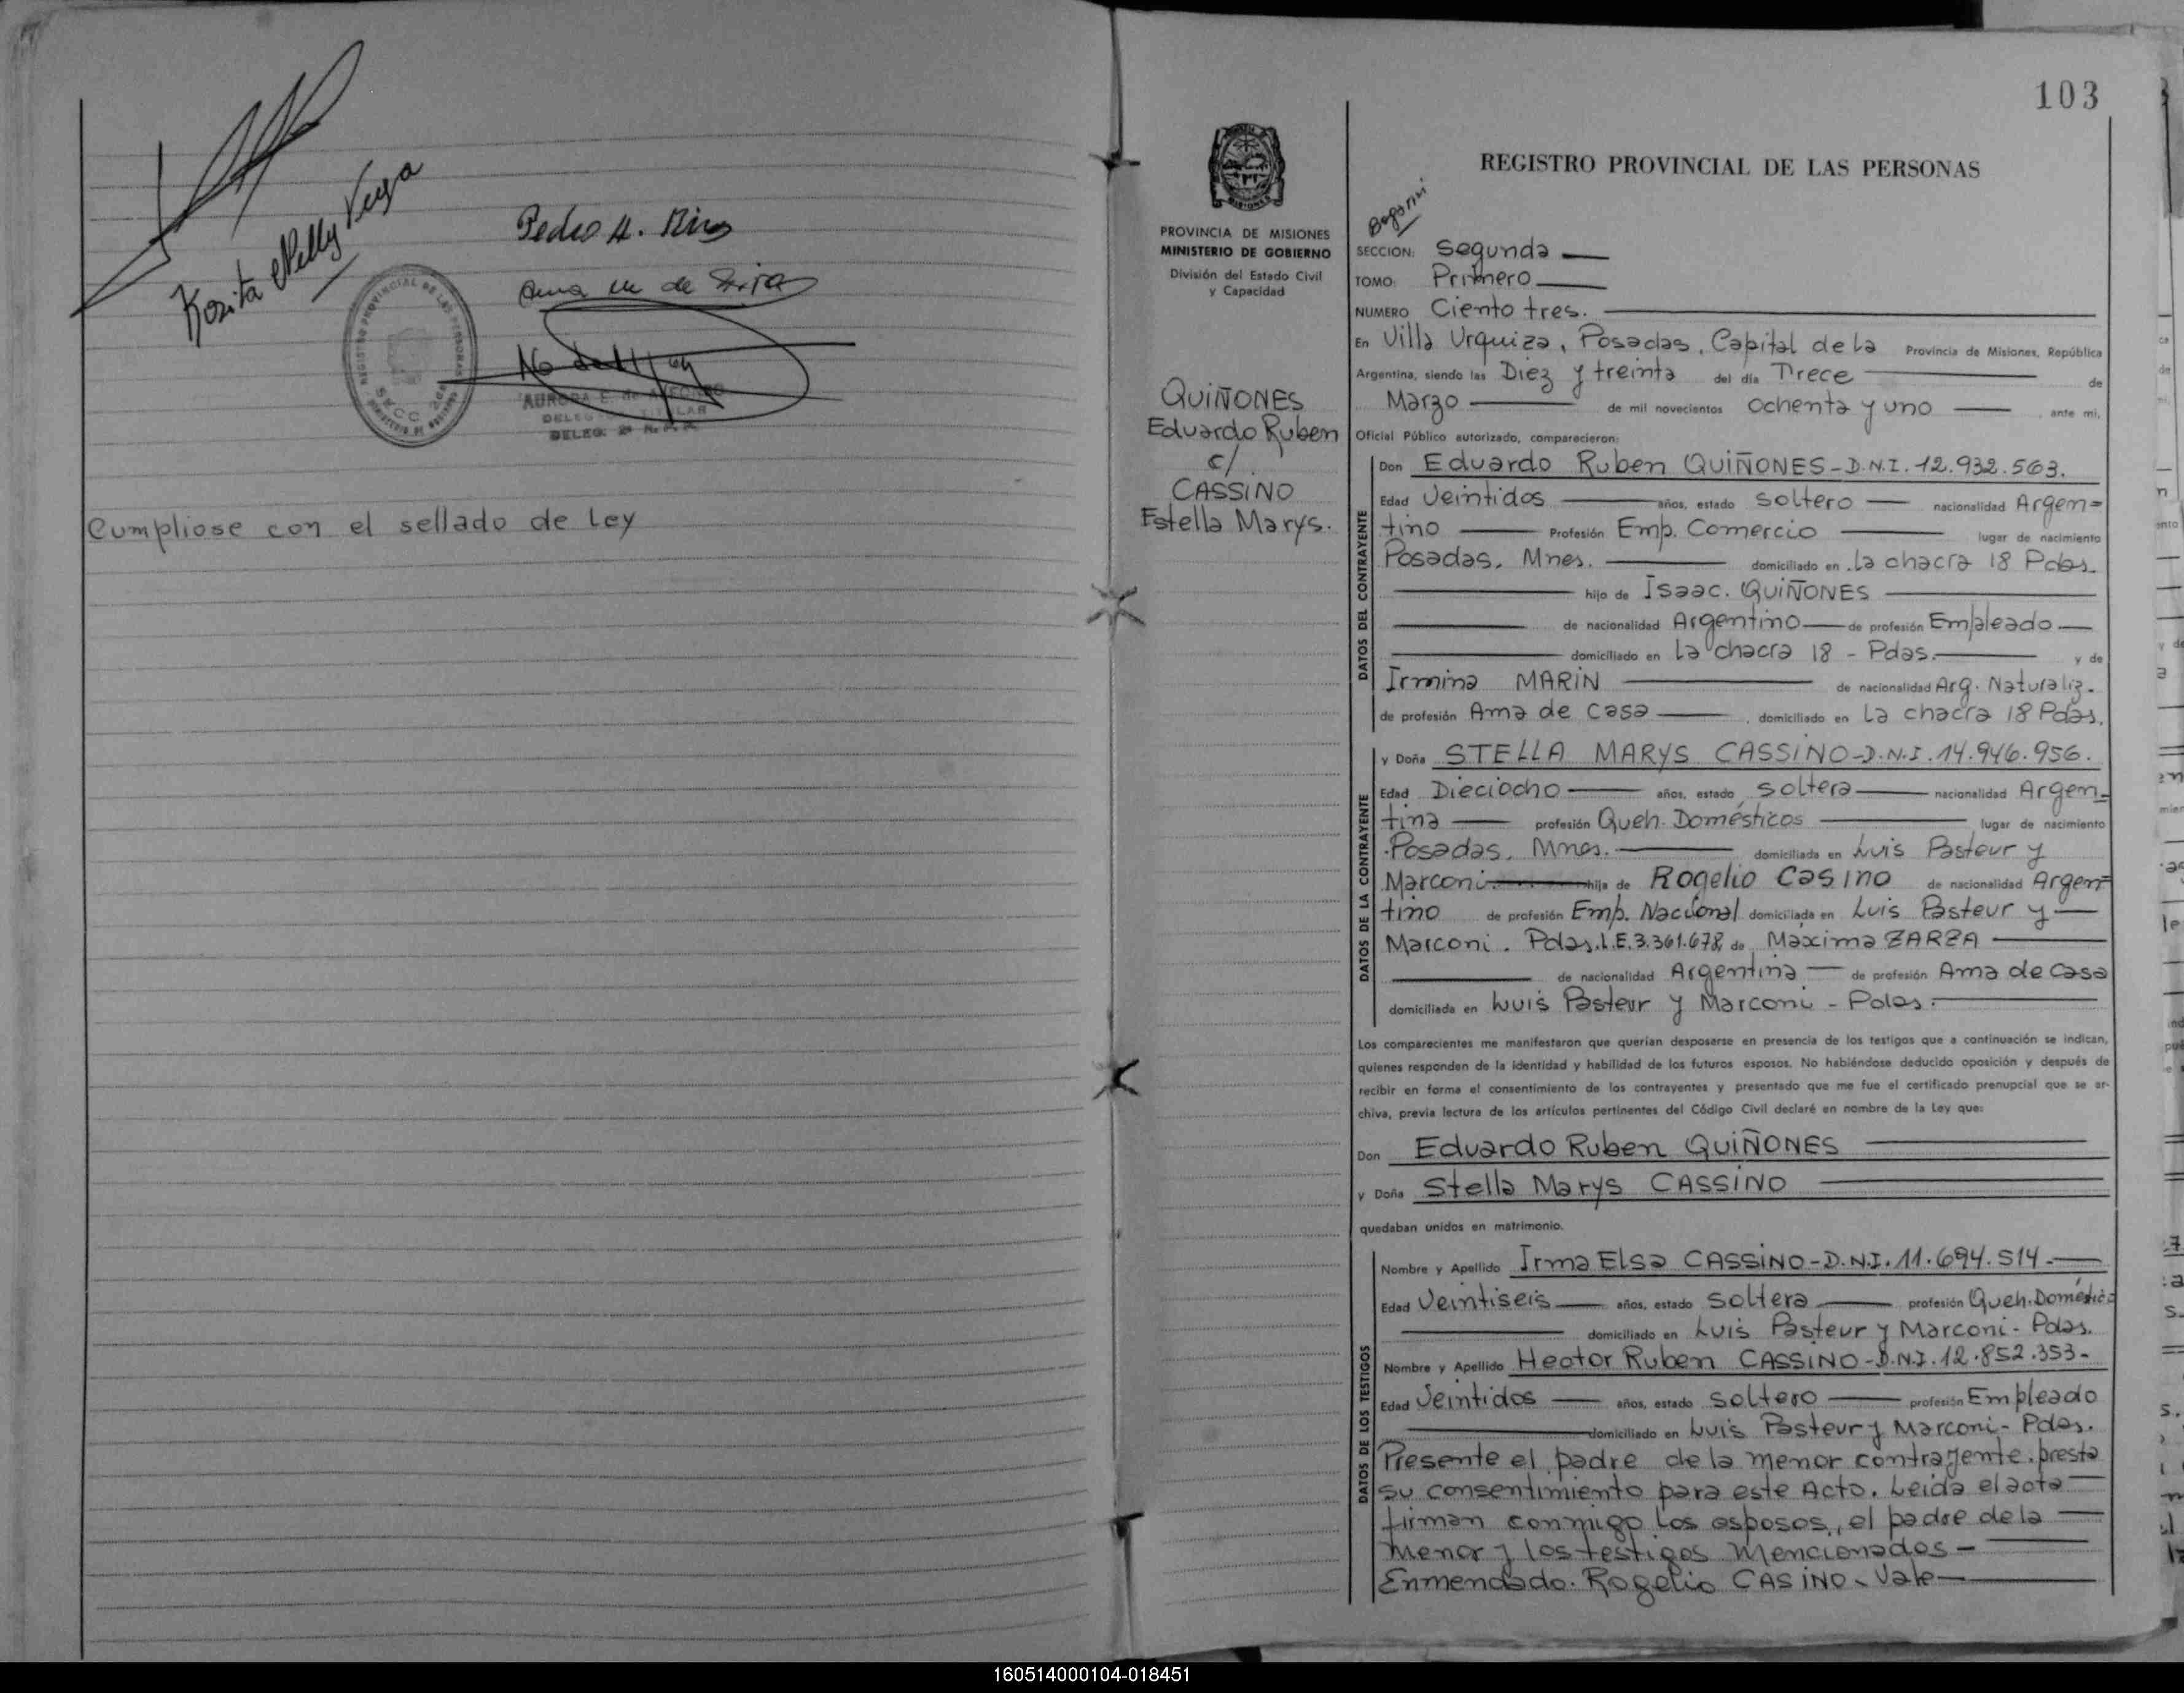 Rosita Nelly Vega
Pedro A.
de
AURORA E. de
DELEG. TITULAR
DELEG. 2ª R. P. P.
REGISTRO PROVINCIAL DE LAS PERSONAS
SECC. 2da
Cumpliose con el sellado de Ley
103
PROVINCIA DE MISIONES
MINISTERIO DE GOBIERNO
División del Estado Civil
y Capacidad
QUIÑONES
Eduardo Ruben
c/.
CASSINO
Estella Marys.
REGISTRO PROVINCIAL DE LAS PERSONAS
SECCION: Segunda
TOMO: Primero
NUMERO Ciento tres.
En Villa Urquiza, Posadas, Capital de la Provincia de Misiones, República
Argentina, siendo las Diez y treinta del día Trece de
Marzo de mil novecientos ochenta y uno, ante mi,
Oficial Público autorizado, comparecieron:
DATOS DEL CONTRAYENTE
Don Eduardo Ruben QUIÑONES-D.N.I. 12.932.563.
Edad Veintidos años, estado soltero nacionalidad Argen=
tino Profesión Emp. Comercio lugar de nacimiento
Posadas, Mnes. domiciliado en La chacra 18 Pdas.
hijo de Isaac. QUIÑONES
de nacionalidad Argentino de profesión Empleado
domiciliado en La chacra 18 - Pdas. y de
Irmina MARIN de nacionalidad Arg. Naturaliz.
de profesión Ama de Casa, domiciliado en La chacra 18 Pdas.
DATOS DE LA CONTRAYENTE
y Doña STELLA MARYS CASSINO-D.N.I. 14.946.956.
Edad Dieciocho años, estado soltera nacionalidad Argen=
tina profesión Queh. Domésticos lugar de nacimiento
Posadas, Mnes. domiciliada en Luis Pasteur y
Marconi. hija de Rogelio Casino de nacionalidad Argen=
tino de profesión Emp. Nacional domiciliada en Luis Pasteur y
Marconi. Pdas. L.E. 3.361.678, de Máxima ZARZA
de nacionalidad Argentina de profesión Ama de Casa
domiciliada en Luis Pasteur y Marconi - Pdas.
Los comparecientes me manifestaron que querían desposarse en presencia de los testigos que a continuación se indican,
quienes responden de la identidad y habilidad de los futuros esposos. No habiéndose deducido oposición y después de
recibir en forma el consentimiento de los contrayentes y presentado que me fue el certificado prenupcial que se ar-
chiva, previa lectura de los artículos pertinentes del Código Civil declaré en nombre de la Ley que:
Don Eduardo Ruben QUIÑONES
y Doña Stella Marys CASSINO
quedaban unidos en matrimonio.
DATOS DE LOS TESTIGOS
Nombre y Apellido Irma Elsa CASSINO-D.N.I. 11.694.514.-
Edad Veintiseis años, estado soltera profesión Queh. Doméstic
domiciliado en Luis Pasteur y Marconi - Pdas.
Nombre y Apellido Hector Ruben CASSINO-D.N.I. 12.852.353-
Edad Veintidos años, estado soltero profesión Empleado
domiciliado en Luis Pasteur y Marconi - Pdas.
Presente el padre de la menor contrayente. presta
su consentimiento para este Acto. Leida el acta
firman conmigo los esposos, el padre de la
menor y los testigos mencionados -
Enmendado. Rogelio CASINO. Vale
160514000104-018451